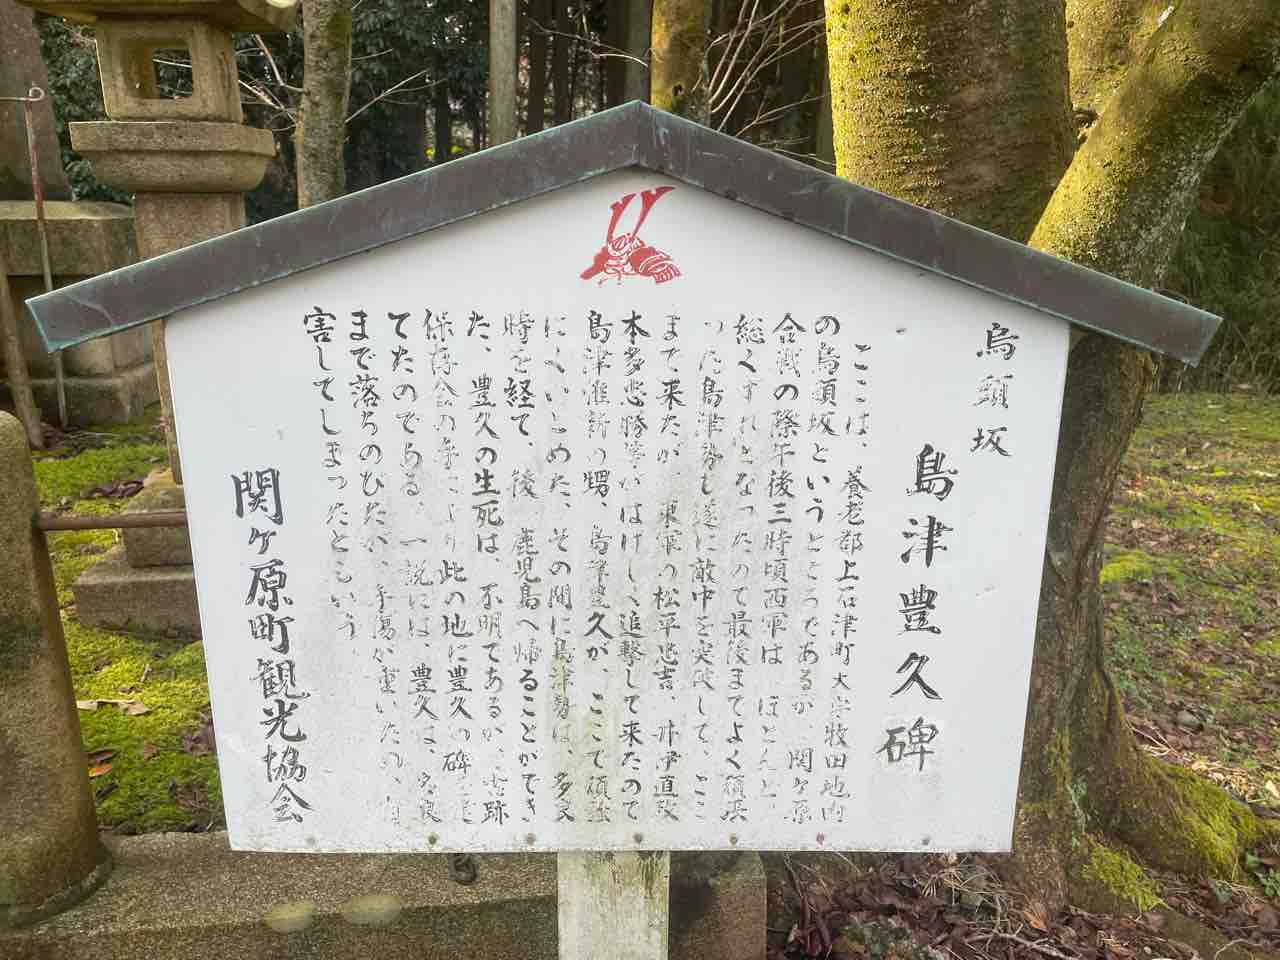 烏頭坂
島津豊久碑
ここは、養老郡上石津町大字牧田地内
の烏頭坂というところであるが、関ヶ原
合戦の際午後三時頃西軍は、ほとんど、
総くずれとなったので最後までよく頑張
った島津勢も遂に敵中を突破して、ここ
まで来たが、東軍の松平忠吉、井伊直政
本多忠勝等がはげしく追撃して来たので
島津惟新の甥、島津豊久が、ここで頑強
にくいとめた、その間に島津勢は、多良
時を経て、後 鹿児島へ帰ることができ
た、豊久の生死は、不明であるが、史跡
保存会の手により此の地に豊久の碑を建
てたのである、一説には、豊久は、多良
まで落ちのびたが、手傷が重いため、自
害してしまったともいう、
関ヶ原町観光協会